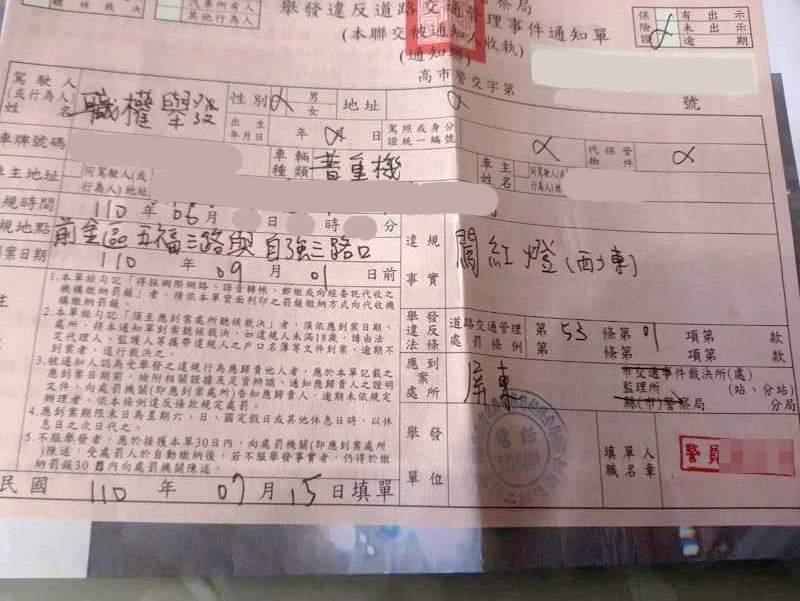 聽核裁決
汽車所有人
其他行為人
察局
舉發違反道路交通管理事件通知單
(本聯交被通知人收執)
(通知聯)
保險證
有出示
未出示
逾期
高市警交字第 號
駕駛人(或行為人)姓名 職權舉發 性別 男 女 地址
出生年月日 年 日 駕照或身分證統一編號 代保管物件
車牌號碼 車輛種類 普重機 車主姓名 同駕駛人(或行為人)
車主地址 同駕駛人(或行為人)地址
規時間 110 年 06 月 時 分
規地點 前金區五福三路與自強三路口 違規事實 闖紅燈(西往東)
案日期 110 年 09 月 01 日前
1.本單經勾記「得採網際網路、語音轉帳、郵繳或向經委託代收之機構繳納罰鍰」者,請依本單背面列印之罰鍰繳納方式向代收機構繳納罰鍰。
2.本單經勾記「須至應到案處所聽候裁決」者,須依應到案日期、處所,持本通知單到案聽候裁決。如違規人未滿18歲,請由法定代理人、監護人等攜帶違規人之戶口名簿等文件到案,逾期不到案者,逕行裁決之。
3.被通知人認為受舉發之違規行為應歸責他人者,應於本單記載之應到案日期前,檢附相關證據及足資辨識、通知應歸責人之證明文件,向處罰機關(即應到案處所)告知應歸責人,逾期未依規定辦理者,依本條例違反條款規定處罰。
4.應到案期限末日為星期六、日、國定假日或其他休息日時,以休息日之次日代之。
5.不服舉發者,應於接獲本單30日內,向處罰機關(即應到案處所)陳述;受處罰人於自動繳納後,若不服舉發事實者,仍得於繳納罰鍰30日內向處罰機關陳述。
舉發違反法條 道路交通管理處罰條例 第 53 條第 01 項第 款
第 條第 項第 款
應到案處所 屏東 市交通事件裁決所(處)
監理所 (站、分站)
縣(市)警察局 分局
舉發單位 填單人職名章 警員
民國 110 年 07 月 15 日填單